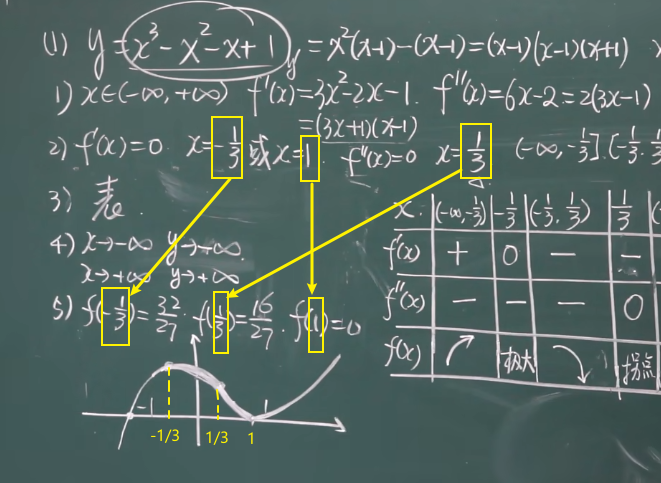 (1) y = x³ - x² - x + 1 y = x²(x-1)-(x-1)=(x-1)(x-1)(x+1)
1) x∈(-∞, +∞) f'(x)=3x²-2x-1. f''(x)=6x-2=2(3x-1)
=(3x+1)(x-1)
2) f'(x)=0. x=-1/3 或 x=1. f''(x)=0 x=1/3 (-∞, -1/3].[-1/3.
3) 表.
4) x→-∞ y→-∞.
x→+∞ y→+∞
5) f(-1/3)=32/27. f(1/3)=16/27. f(1)=0
x. (-∞,-1/3) -1/3 (-1/3, 1/3) 1/3 (
f'(x) + 0 - -
f''(x) - - - 0
f(x) ↗ 极大 ↘ 拐点
-1 1
-1/3 1/3 1